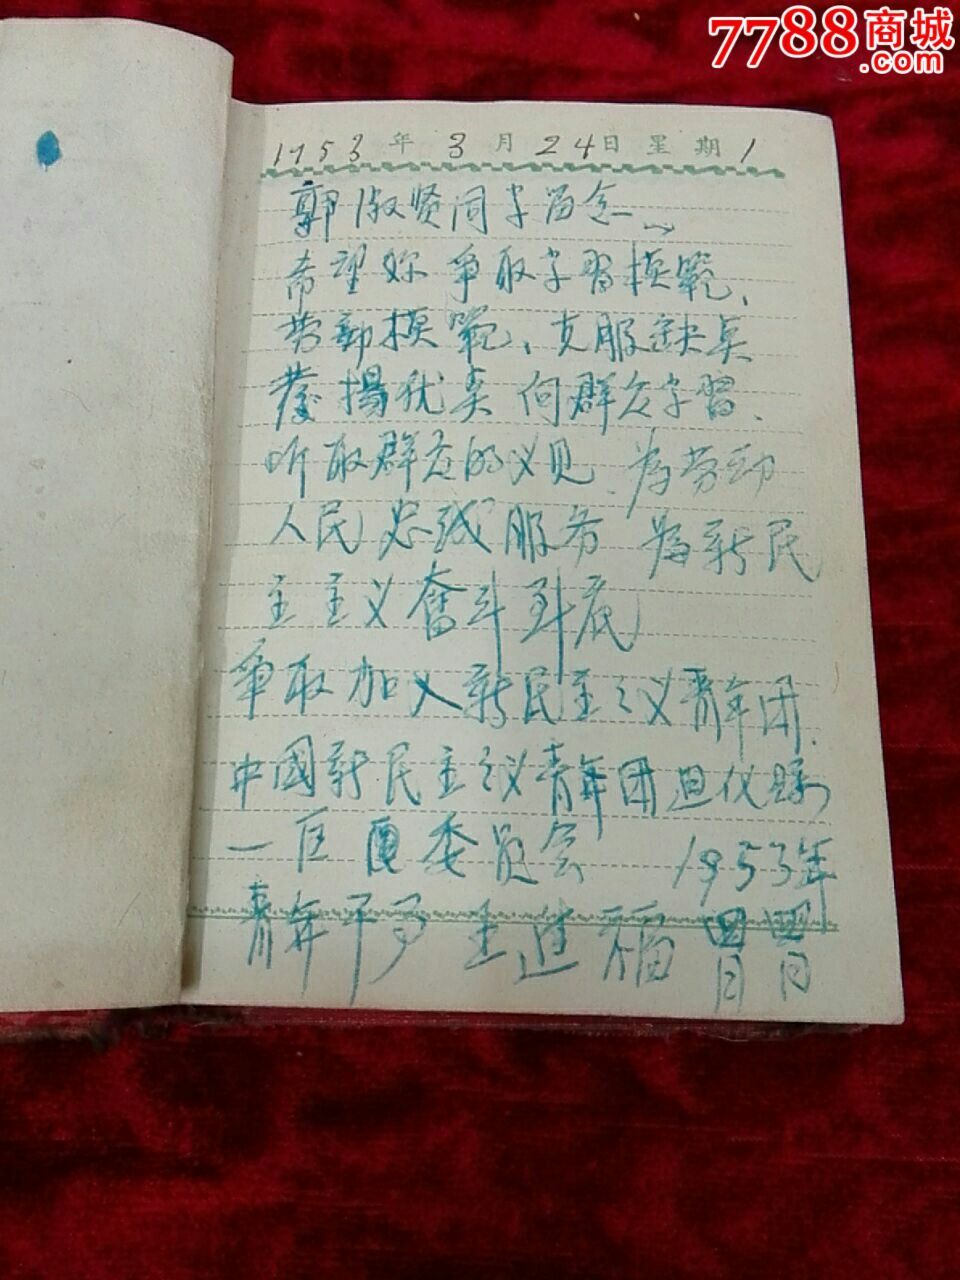 7788商城
.com
1953年3月24日星期1
郭淑贤同学留念
希望妳争取学習模範、
劳动模範、克服缺点
發揚优点 向群众学習、
听取群众的义见、为劳动
人民忠诚服务 為新民
主主义奋斗到底
争取加入新民主主议青年团、
中國新民主主议青年团迴仪縣
一区委员会 1953年
青年干 王进福 四月四日